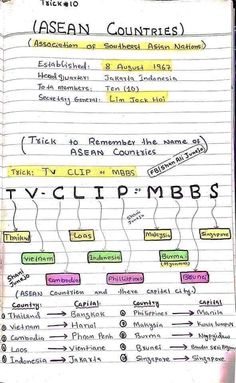 Trick #10
(ASEAN Countries)
(Association of Southeast Asian Nations)
Established: 8 August 1967
Headquarter: Jakarta Indonesia
Tota members: Ten (10)
Secretary General: Lim Jock Hoi
(Trick to Remember the name of
ASEAN Countries)
FB/Shan Ali Junejo
Trick: TV CLIP = MBBS
TV-CLIP=MBBS
Shani Junejo
Thailand Loas Malaysia Singapore
Vietnam Indonesia Burma
(Myanmar)
Shani Junejo
Cambodia Philippines Brunei
(ASEAN Countries and there capital city.)
Country: Capital: Country Capital
Thailand → Bangkok Philipines → Manila
Vietnam → Hanoi Malaysia → Kuala lumpur
Cambodia → Phnom Penh Burma → Naypyidaw
Laos → Vientiane Brunei → Bandar Seri Begawan
Indonesia → Jakarta Singapore → Singapore